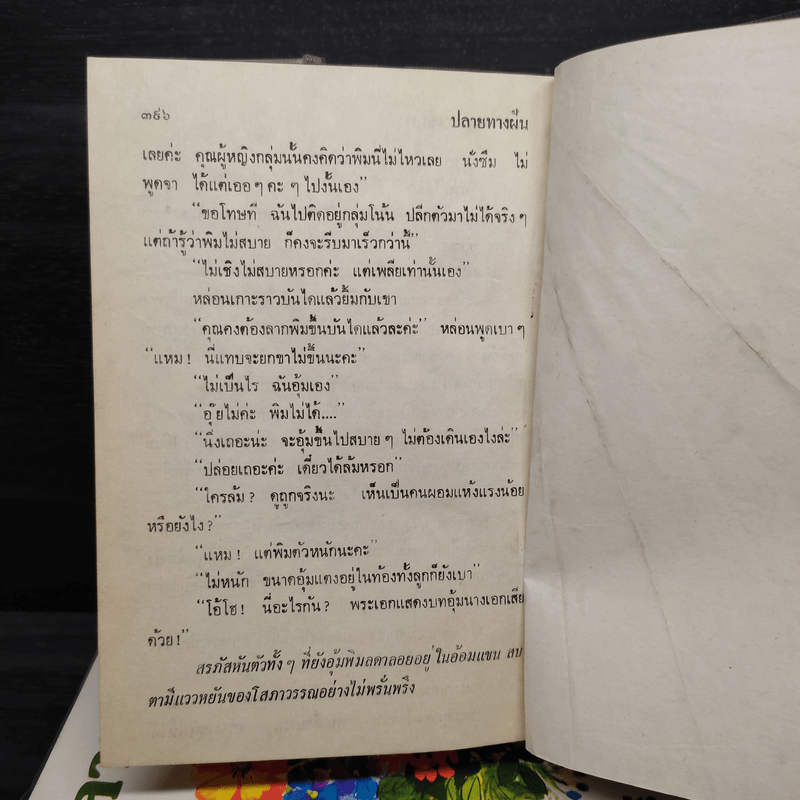 ๓๙๖ ปลายทางฝัน
เลยค่ะ คุณผู้หญิงกลุ่มนั้นคงคิดว่าพิมนี่ไม่ไหวเลย นั่งซึม ไม่
พูดจา ได้แต่เออๆ คะๆ ไปงั้นเอง”
“ขอโทษที ฉันไปติดอยู่กลุ่มโน้น ปลีกตัวมาไม่ได้จริงๆ
แต่ถ้ารู้ว่าพิมไม่สบาย ก็คงจะรีบมาเร็วกว่านี้”
“ไม่เชิงไม่สบายหรอกค่ะ แต่เพลียเท่านั้นเอง”
หล่อนเกาะราวบันไดแล้วยิ้มกับเขา
“คุณคงต้องลากพิมขึ้นบันไดแล้วละค่ะ” หล่อนพูดเบาๆ
“แหม! นี่แทบจะยกขาไม่ขึ้นนะคะ”
“ไม่เป็นไร ฉันอุ้มเอง”
“อุ๊ยไม่ค่ะ พิมไม่ได้....”
“นิ่งเถอะน่ะ จะอุ้มขึ้นไปสบายๆ ไม่ต้องเดินเองไงล่ะ”
“ปล่อยเถอะค่ะ เดี๋ยวได้ล้มหรอก”
“ใครล้ม? ดูถูกจริงนะ เห็นเป็นคนผอมแห้งแรงน้อย
หรือยังไง?”
“แหม! แต่พิมตัวหนักนะคะ”
“ไม่หนัก ขนาดอุ้มแตงอยู่ในท้องทั้งลูกก็ยังเบา”
“โอ้โฮ! นี่อะไรกัน? พระเอกแสดงบทอุ้มนางเอกเสีย
ด้วย!”
สรภัสหันตัวทั้งๆ ที่ยังอุ้มพิมลตาลอยอยู่ในอ้อมแขน สบ
ตามีแววหยันของโสภาวรรณอย่างไม่พรั่นพรึง